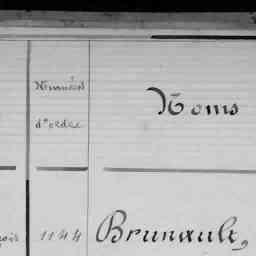 Numéros
d'ordre
Noms
1144 Brunault,